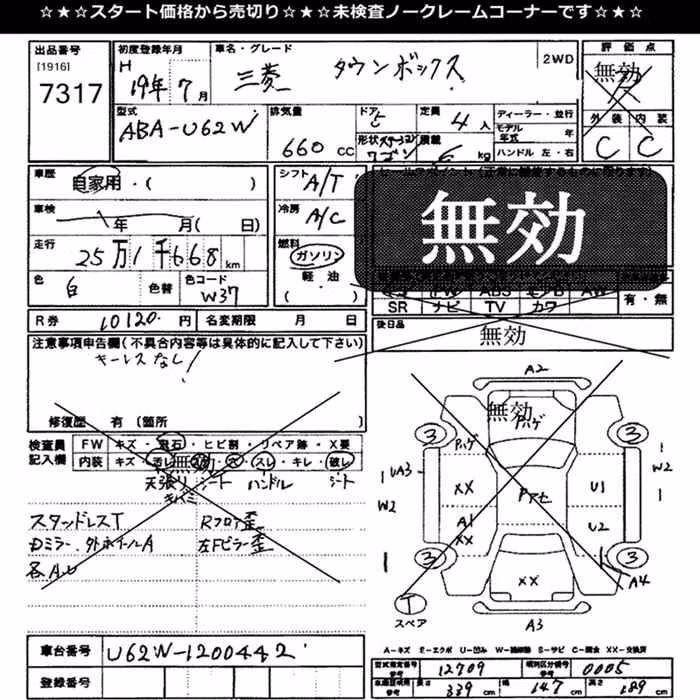 ☆★☆スタート価格から売切り☆★☆未検査ノークレームコーナーです☆★☆
出品番号
[1916]
7317
初度登録年月
H 19年 7月
車名・グレード
三菱 タウンボックス
2WD
評価点
無効
外装 内装
C C
型式
ABA-U62W
排気量
660 cc
ドア
5
形状
ステーションワゴン
定員
4人
積載
kg
ディーラー・並行
モデル年式 年
ハンドル 左・右
車歴
自家用・( )
車検
年 月( 日)
走行
25万1千668 km
色
白
色替
色コード
W37
シフト
A/T
冷房
A/C
燃料
ガソリン
軽油
( )
無効
SR ナビ TV カワ
有・無
R券 10120円
名変期限 月 日
後日品
無効
注意事項申告欄(不具合内容等は具体的に記入して下さい)
キーレスなし!
修復歴 有 〔箇所 〕
検査員記入欄
FW キズ・飛石・ヒビ割・リペア跡・X要
内装 キズ・汚レ・コゲ・穴・スレ・キレ・破レ
無効
天張リ シート ハンドル シート
スタッドレスT
Dミラー.外ホイールA
各A.U
Rフロア歪
左Fピラー歪
車台番号 U62W-1200442
登録番号
A2
無効
Pハゲ
Pハゲ
3 3
UA3
W2
W2
XX
Pアセ
U1
A1
XX
U2
3 3
A4
XX
T
スペア
A3
A-キズ E-エクボ U-凹み W-補修跡 S-サビ C-腐食 XX-交換済
型式指定番号 参考 12709
類別区分番号 参考 0005
車庫証明用 参考 長さ 339 cm 幅 147 cm 高さ 189 cm